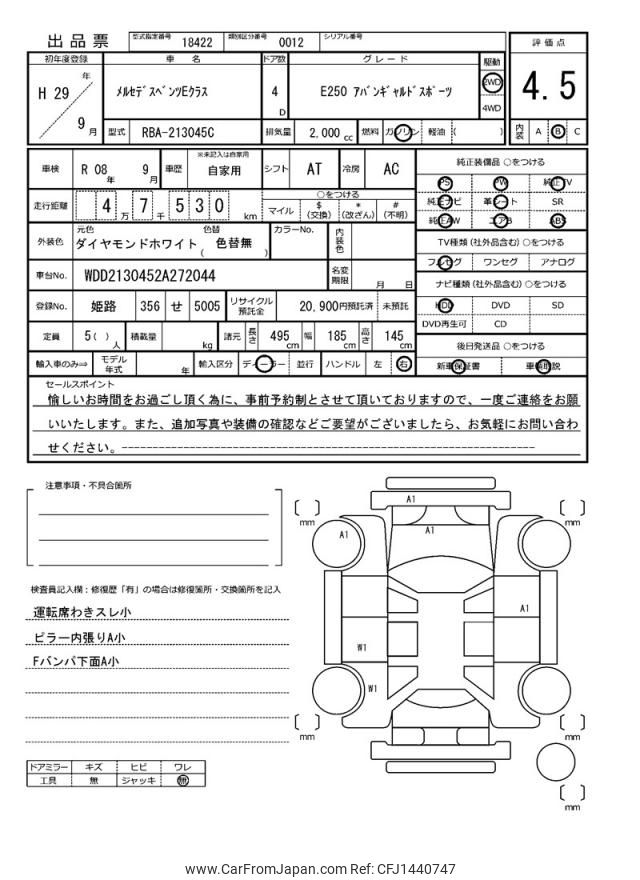 出品票 型式指定番号 18422 類別区分番号 0012 シリアル番号
評価点
4.5
内装 A B C
初年度登録 車名 ドア数 グレード 駆動
H 29 年 9 月
メルセデスベンツEクラス 4 D E250 アバンギャルドスポーツ 2WD
4WD
型式 RBA-213045C 排気量 2,000 cc 燃料 ガソリン 軽油 ( )
車検 R 08 年 9 月 車歴 ※未記入は自家用 自家用 シフト AT 冷房 AC
走行距離 4 万 7 千 5 3 0 km
○をつける
マイル $ (交換) * (改ざん) # (不明)
外装色 元色 ダイヤモンドホワイト 色替 ( 色替無 ) カラーNo. 内装色
車台No. WDD2130452A272044 名変期限 月 日
登録No. 姫路 356 せ 5005 リサイクル預託金 20,900円預託済 未預託
定員 5 ( ) 人 積載量 kg 諸元 長さ 495 cm 幅 185 cm 高さ 145 cm
輸入車のみ⇒ モデル年式 年 輸入区分 ディーラー 並行 ハンドル 左 右
純正装備品 ○をつける
PS PW 純正TV
純正ナビ 革シート SR
純正AW エアB ABS
TV種類 (社外品含む) ○をつける
フルセグ ワンセグ アナログ
ナビ種類 (社外品含む) ○をつける
HDD DVD SD
DVD再生可 CD
後日発送品 ○をつける
新車保証書 車輌取説
セールスポイント
愉しいお時間をお過ごし頂く為に、事前予約制とさせて頂いておりますので、一度ご連絡をお願
いいたします。また、追加写真や装備の確認などご要望がございましたら、お気軽にお問い合わ
せください。------------------------------------------------------------
注意事項・不具合箇所
検査員記入欄：修復歴「有」の場合は修復箇所・交換箇所を記入
運転席わきスレ小
ピラー内張りA小
Fバンパ下面A小
ドアミラー キズ ヒビ ワレ
工具 無 ジャッキ 無
A1
A1
A1
A1
W1
W1
[ ] mm
[ ] mm
[ ] mm
[ ] mm
[ ] mm
www.CarFromJapan.com Ref: CFJ1440747